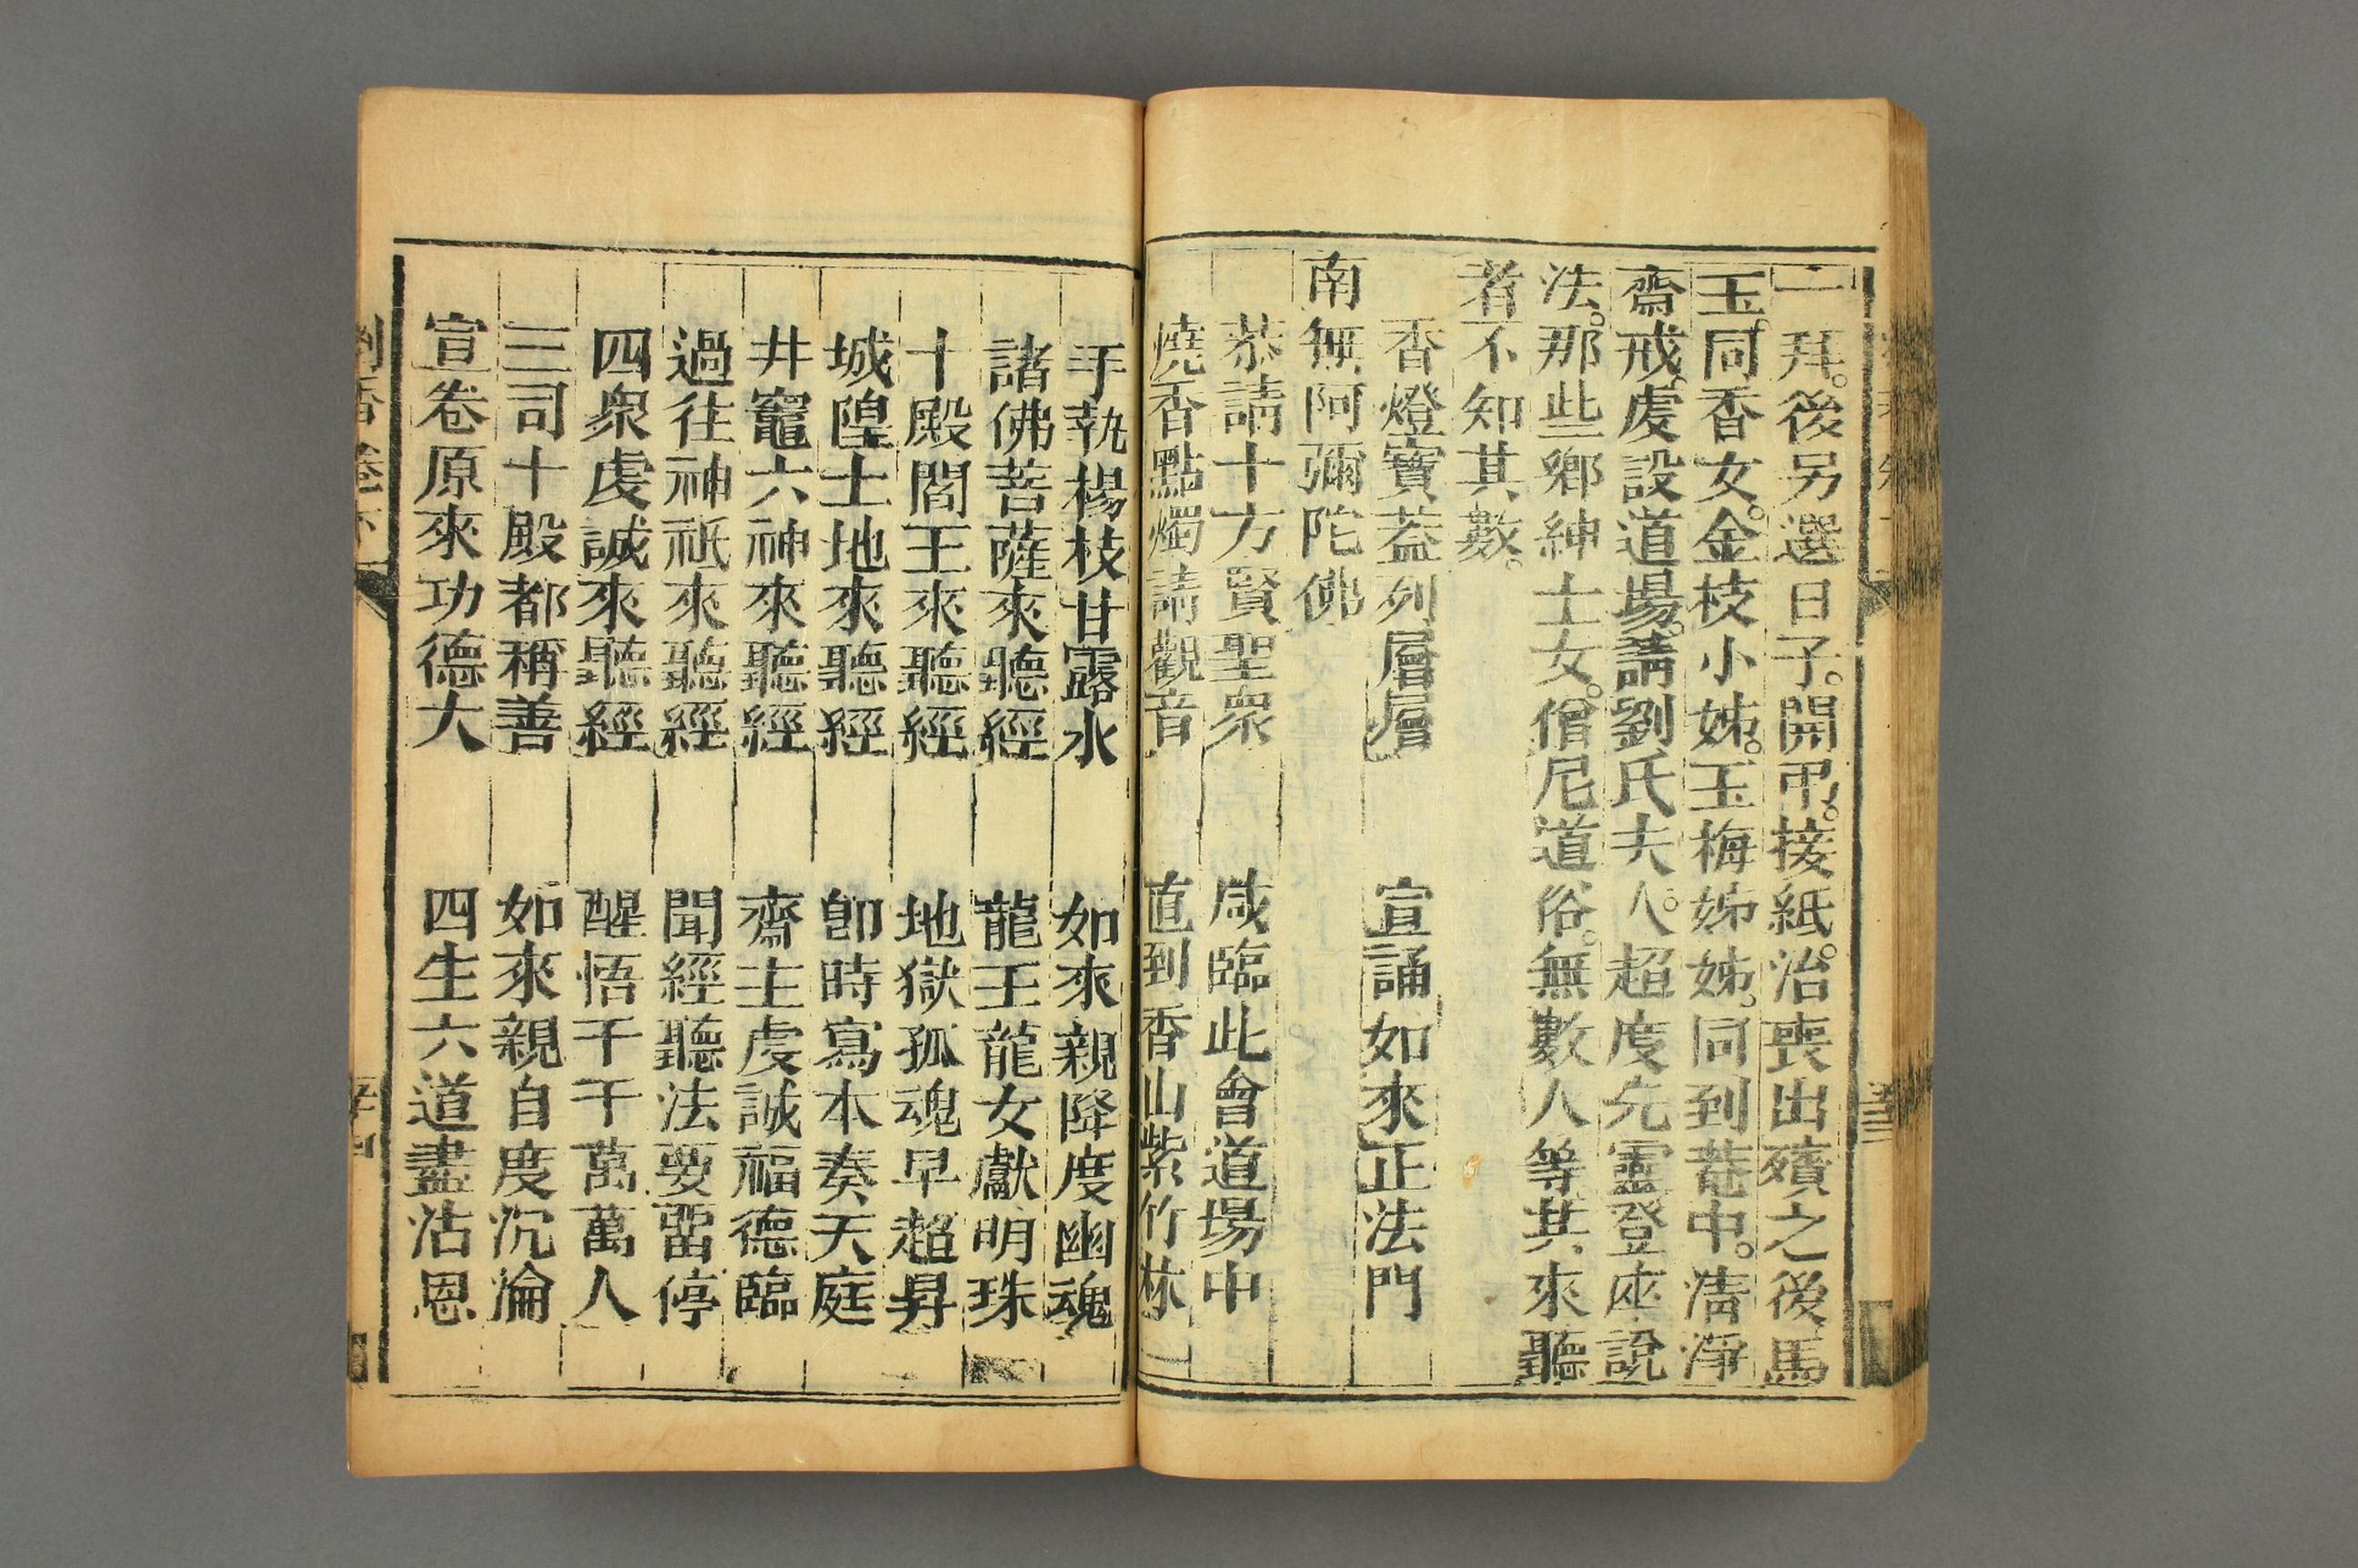 一拜。後另選日子。開弔。接紙。治喪出殯之後馬
玉。同香女。金枝小姊。玉梅姊姊。同到菴中。淸淨
齋戒。虔設道場。請劉氏夫人。超度先靈登座說
法。那些鄉紳士女。僧尼道俗。無數人等。其來聽
者不知其數。
香燈寶葢列層層　宣誦如來正法門
南無阿彌陀佛
恭請十方賢聖衆　咸臨此會道場中
燒香點燭請觀音　直到香山紫竹林
手執楊枝甘露水　如來親降度幽魂
諸佛菩薩來聽經　龍王龍女獻明珠
十殿閻王來聽經　地獄孤魂早超昇
城隍土地來聽經　卽時寫本奏天庭
井竈六神來聽經　齋主虔誠福德臨
過往神祇來聽經　聞經聽法要畱停
四衆虔誠來聽經　醒悟千千萬萬人
三司十殿都稱善　如來親自度沉淪
宣卷原來功德大　四生六道盡沾恩
劉香卷下